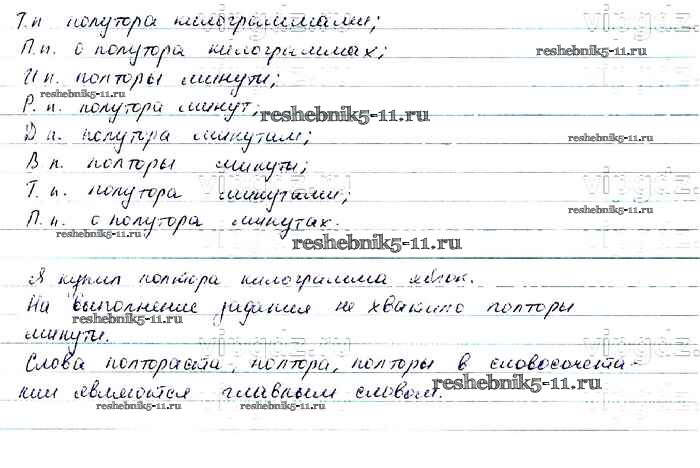 Т.п полутора килограммами;
П.п. о полутора килограммах;
И п. полторы минуты;
Р. п. полутора минут;
Д п. полутора минутам;
В п. полторы минуты;
Т. п. полутора минутами;
П. п. о полутора минутах.
Я купил полтора килограмма яблок.
На выполнение задания не хватило полторы
минуты.
Слова полтораста, полтора, полторы в словосочета-
нии являются главным словом.
vipgdz.ru
reshebnik5-11.ru
reshebnik5-11.ru
reshebnik5-11.ru
reshebnik5-11.ru
vipgdz.ru
vipgdz.ru
reshebnik5-11.ru
reshebnik5-11.ru
reshebnik5-11.ru
reshebnik5-11.ru
vipgdz.ru
vipgdz.ru
reshebnik5-11.ru
reshebnik5-11.ru
reshebnik5-11.ru